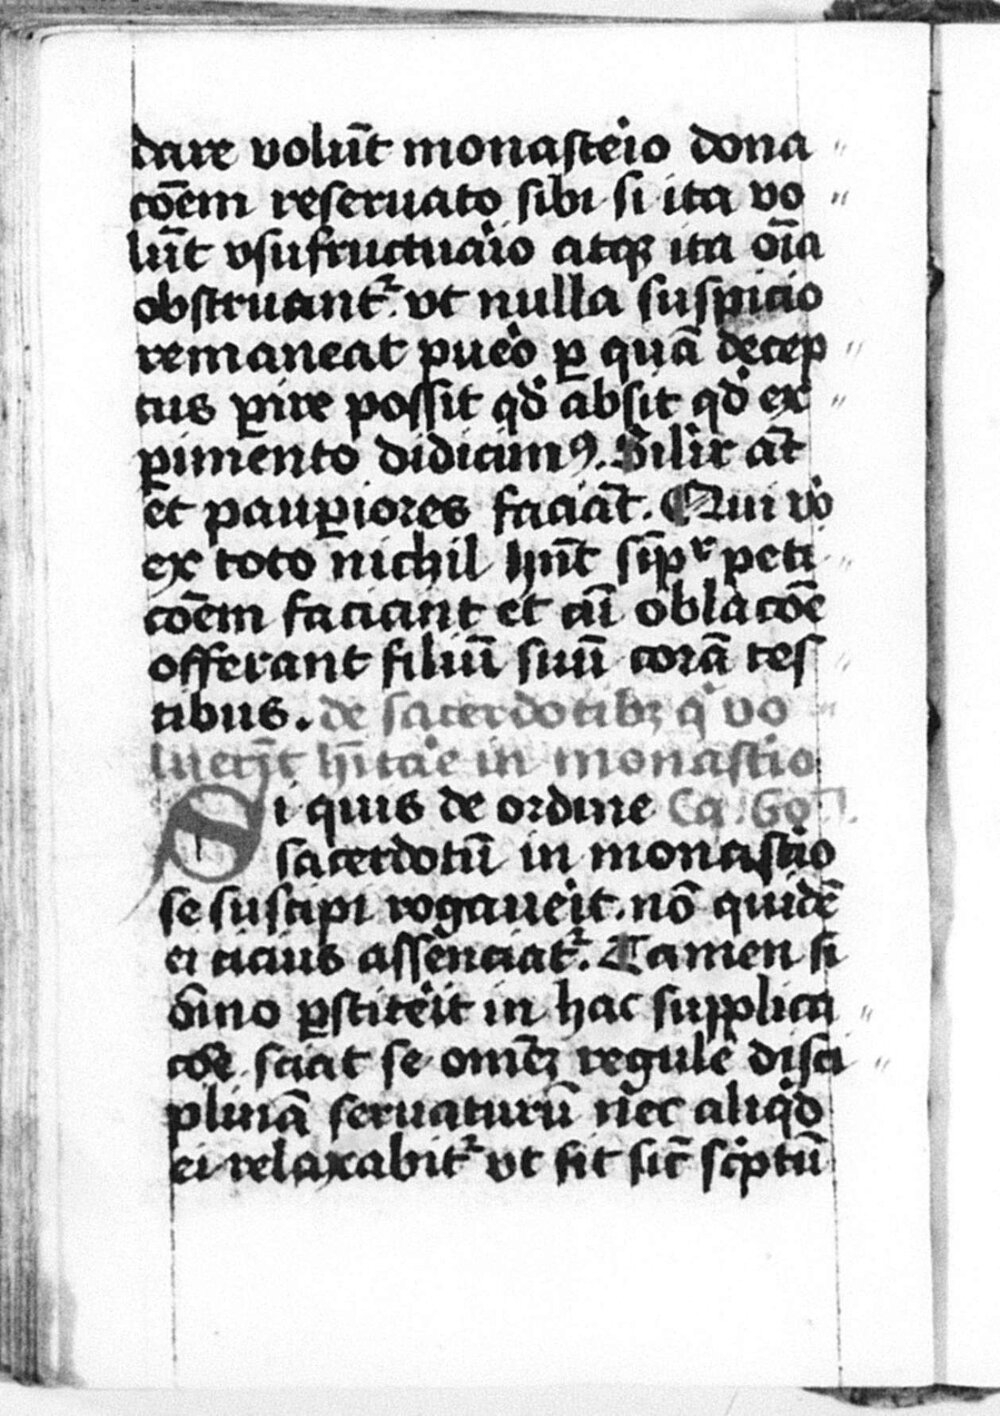 dare volūt monasteio dona〃
cōem reseruato sibi si ita vo〃
lūt vsufructuaio atqꝫ ita oīa
obstruant᷑. vt nulla suspicio
remaneat pueo ꝑ quā decep〃
tus ꝑire possit qd absit qd ex〃
ꝑimento didicimꝰ. Silir at̄
et pauꝑiores faciāt. Qui vo
ex toto nichil hn̄t simpͬ peti〃
cōem faciant et cū oblacōe
offerant filiū suū corā tes〃
tibus. de sacerdotibꝫ qͥ vo〃
luerīt hītae in monastio
Si quis de ordine Ca. 60
sacerdotū in monastio
se suscipi rogaueit. nō quidē
ei cicius assenciat᷑. Tamen si
oīno ꝑstiteit in hac supplica〃
cōe sciat se omēꝫ regule disci〃
plinā seruaturū nec aliqd
ei relaxabit᷑ vt sit sic̄ scͥptū